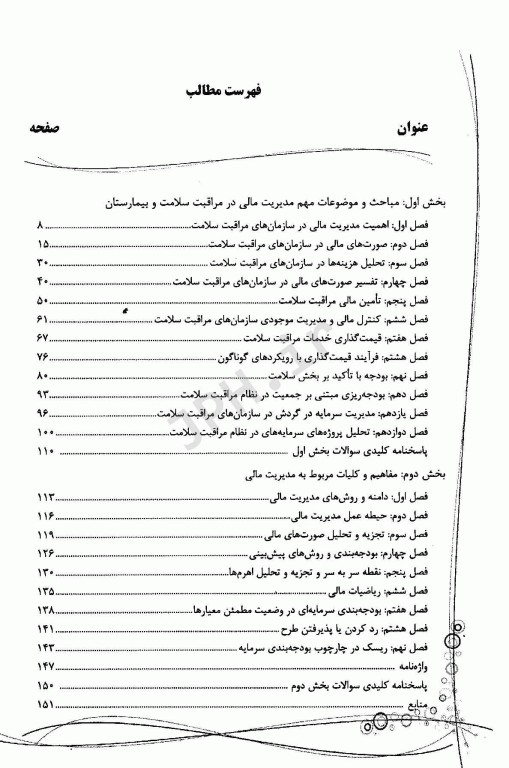 فهرست مطالب
عنوان صفحه
بخش اول: مباحث و موضوعات مهم مدیریت مالی در مراقبت سلامت و بیمارستان
فصل اول: اهمیت مدیریت مالی در سازمان‌های مراقبت سلامت ۸
فصل دوم: صورت‌های مالی در سازمان‌های مراقبت سلامت ۱۵
فصل سوم: تحلیل هزینه‌ها در سازمان‌های مراقبت سلامت ۳۰
فصل چهارم: تفسیر صورت‌های مالی در سازمان‌های مراقبت سلامت ۴۰
فصل پنجم: تأمین مالی مراقبت سلامت ۵۰
فصل ششم: کنترل مالی و مدیریت موجودی سازمان‌های مراقبت سلامت ۶۱
فصل هفتم: قیمت‌گذاری خدمات مراقبت سلامت ۶۷
فصل هشتم: فرآیند قیمت‌گذاری با رویکردهای گوناگون ۷۶
فصل نهم: بودجه با تأکید بر بخش سلامت ۸۰
فصل دهم: بودجه‌ریزی مبتنی بر جمعیت در نظام مراقبت سلامت ۹۳
فصل یازدهم: مدیریت سرمایه در گردش در سازمان‌های مراقبت سلامت ۹۶
فصل دوازدهم: تحلیل پروژه‌های سرمایه‌های در نظام مراقبت سلامت ۱۰۰
پاسخنامه کلیدی سوالات بخش اول ۱۱۰
بخش دوم: مفاهیم و کلیات مربوط به مدیریت مالی
فصل اول: دامنه و روش‌های مدیریت مالی ۱۱۳
فصل دوم: حیطه عمل مدیریت مالی ۱۱۶
فصل سوم: تجزیه و تحلیل صورت‌های مالی ۱۱۹
فصل چهارم: بودجه‌بندی و روش‌های پیش‌بینی ۱۲۶
فصل پنجم: نقطه سر به سر و تجزیه و تحلیل اهرم‌ها ۱۳۰
فصل ششم: ریاضیات مالی ۱۳۵
فصل هفتم: بودجه‌بندی سرمایه‌ای در وضعیت مطمئن معیارها ۱۳۸
فصل هشتم: رد کردن یا پذیرفتن طرح ۱۴۱
فصل نهم: ریسک در چارچوب بودجه‌بندی سرمایه ۱۴۳
واژه‌نامه ۱۴۷
پاسخنامه کلیدی سوالات بخش دوم ۱۵۰
منابع ۱۵۱
JPH.ir